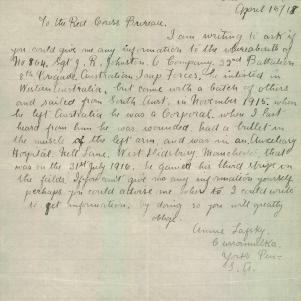 April 16/18
To the Red Cross Bureau.
I am writing to ask if
you could give me any information to the whereabouts of
No 864. Sgt J. R. Johnston. C Company, 32nd Battalion
8th Brigade, Australian Imp Forces, he enlisted in
Western Australia, but came with a batch of others
and sailed from South Aust, in November 1915, when
he left Australia he was a Corporal, when I last
heard from him he was wounded, had a bullet in
the muscle of the left arm, and was in an Auxiliary
Hospital, Nell Lane, West Didsbury, Manchester, that
was in the July 1916, he gained his third stripe on
the fields, if you can't give me any information yourself
perhaps you could advise me where to I could write
to get information, by doing so you will greatly
oblige.
Annie
Curramulka
Yorks Pen-
S. A.